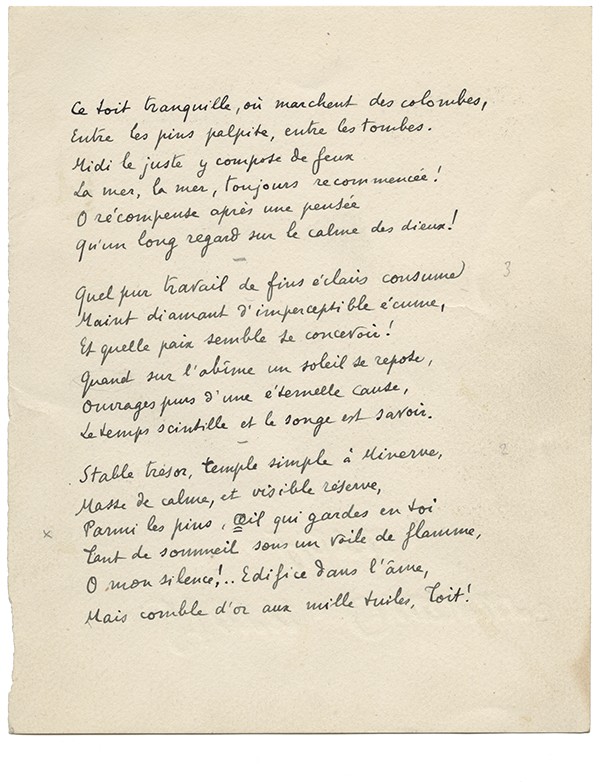 Ce toit tranquille, où marchent des colombes,
Entre les pins palpite, entre les tombes.
Midi le juste y compose de feux
La mer, la mer, toujours recommencée!
O récompense après une pensée
Qu'un long regard sur le calme des dieux!
Quel pur travail de fins éclairs consume
3
Maint diamant d'imperceptible écume,
Et quelle paix semble se concevoir!
Quand sur l'abîme un soleil se repose,
Ouvrages purs d'une éternelle cause,
Le temps scintille et le songe est savoir.
2
Stable trésor, temple simple à Minerve,
Masse de calme, et visible réserve,
Parmi les pins, Œil qui gardes en toi
x
Tant de sommeil sous un voile de flamme,
O mon silence!.. Edifice dans l'âme,
Mais comble d'or aux mille tuiles, Toit!